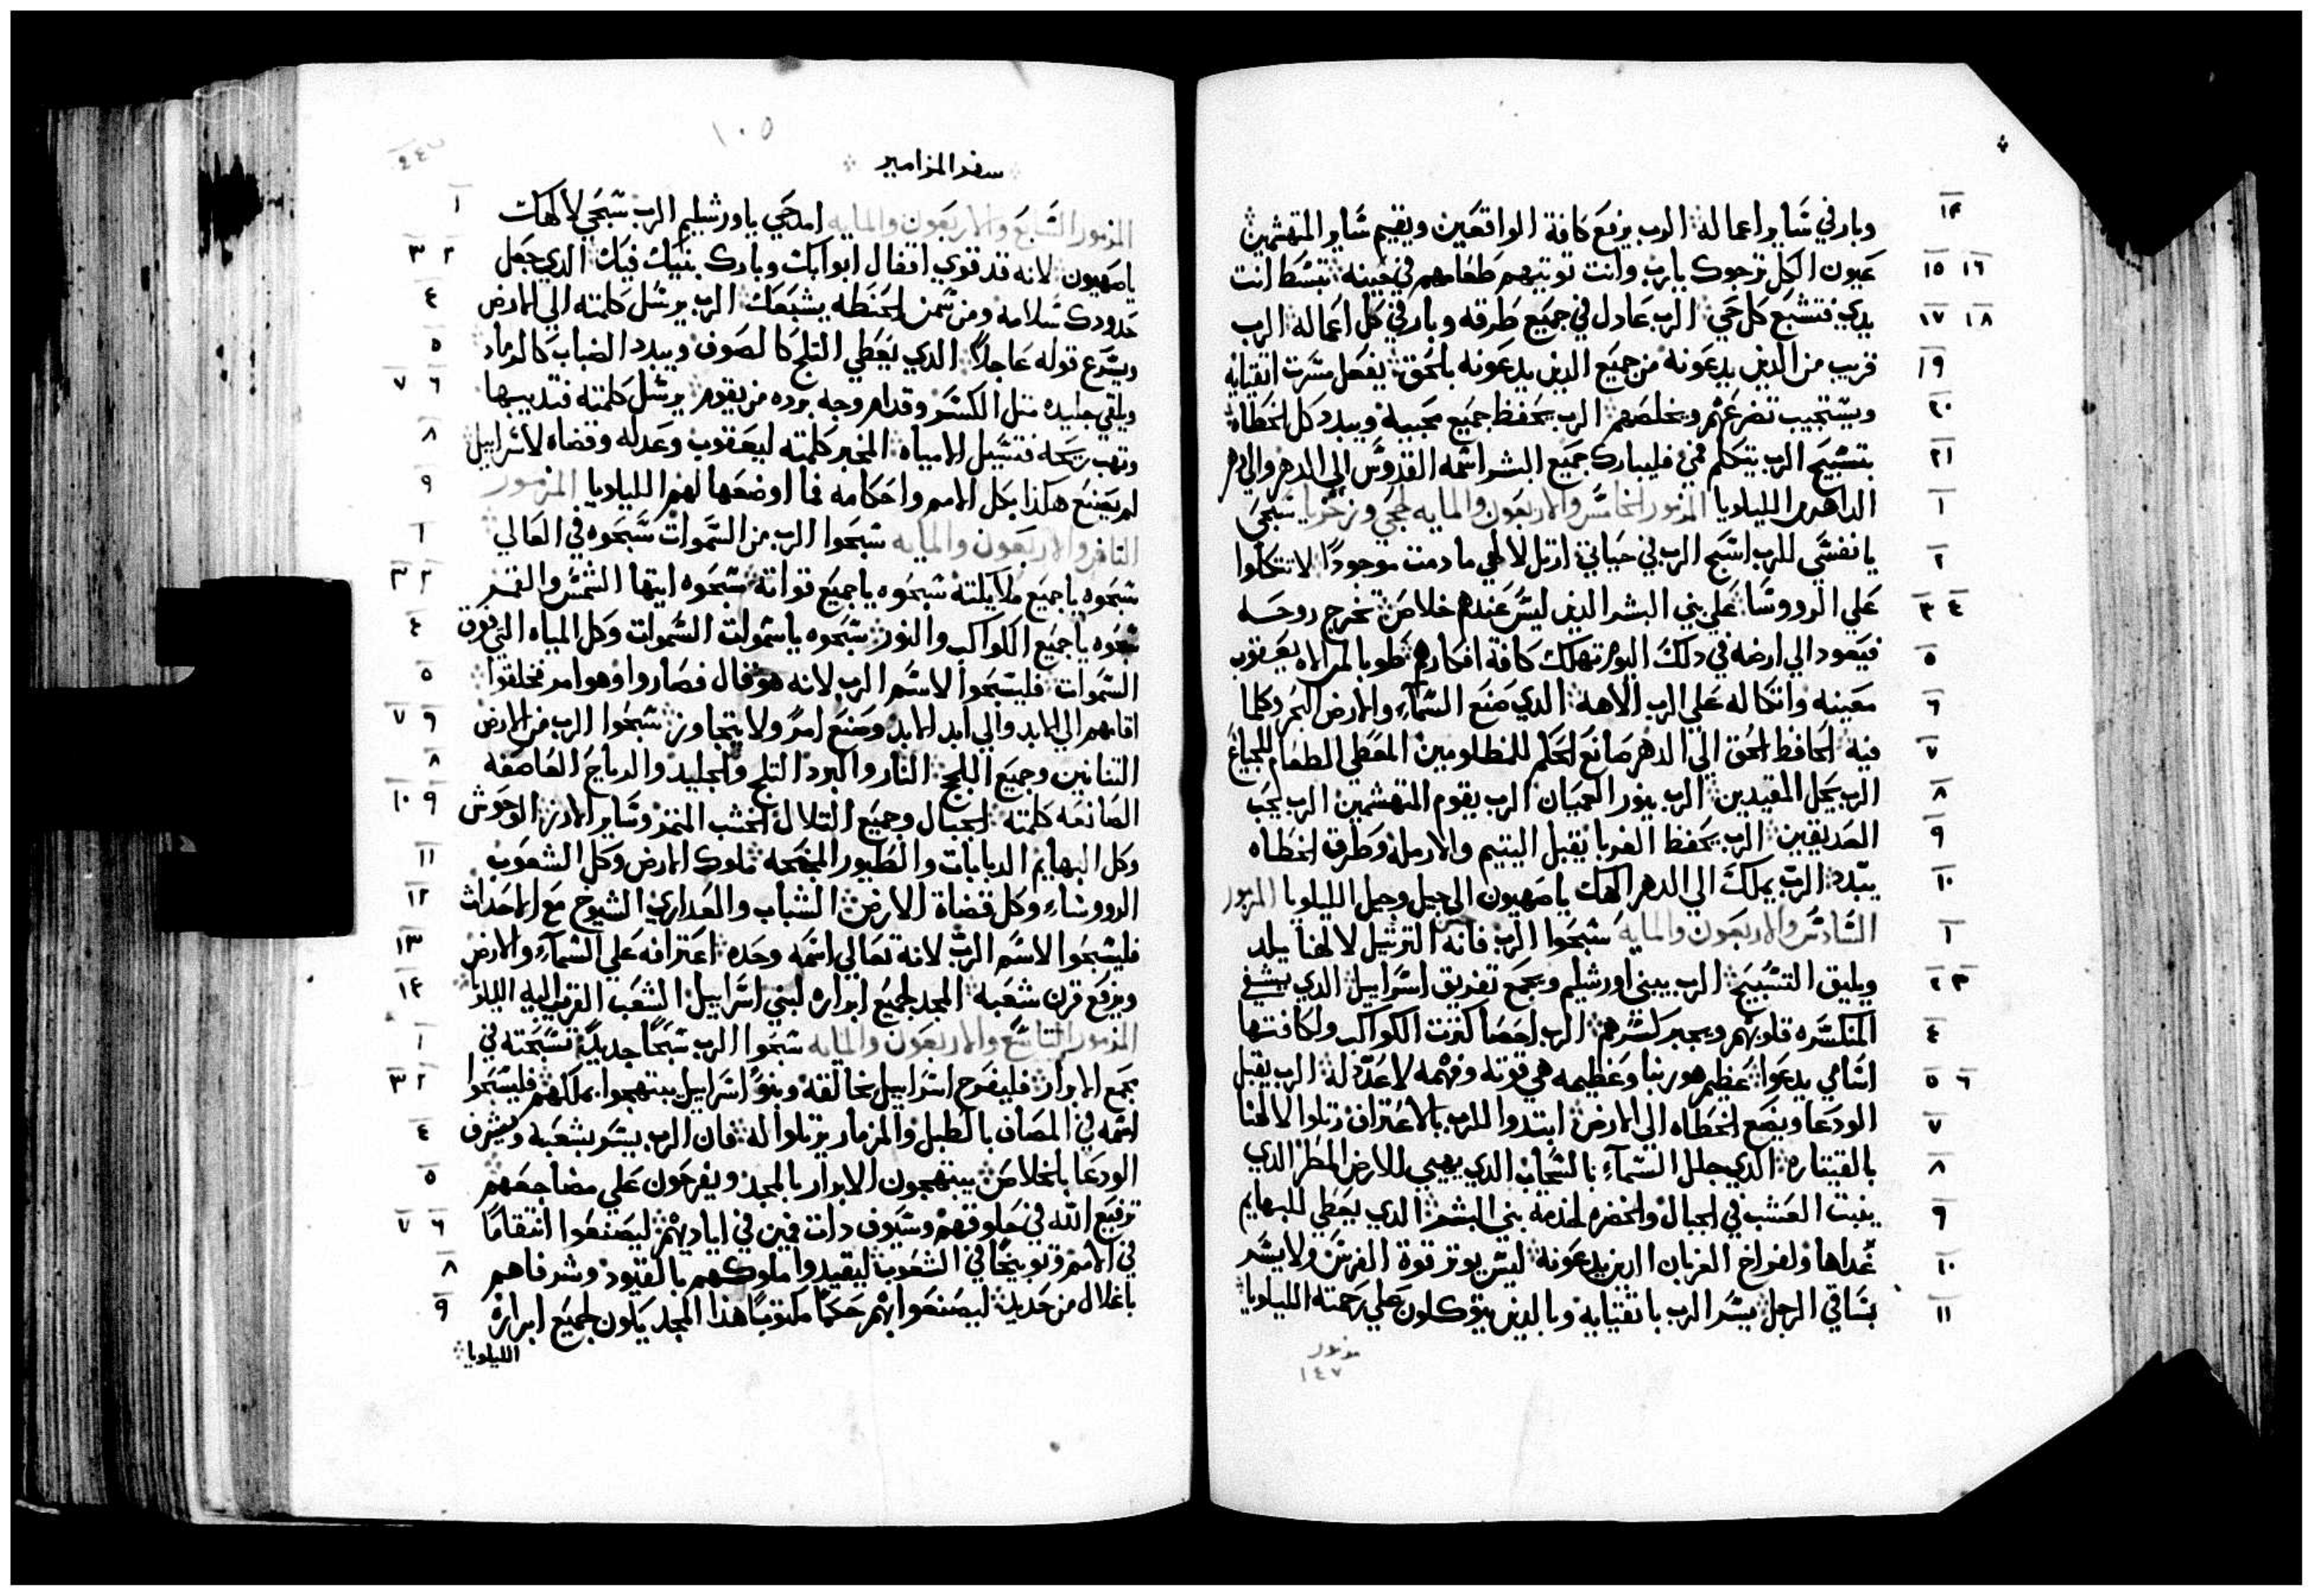 وبار في ساير اعماله الرب يرفع كافة الواقعين ويقيم ساير المتهشمين
١٤
عيون الكل ترجوك يارب وانت توتيهم طعامهم في حينه تبسط انت
١٥ ١٦
يدك فتشبع كل حي الرب عادل في جميع طرقه وبار في كل اعماله الرب
١٧ ١٨
قريب من الذين يدعونه من جميع الذين يدعونه بالحق يفعل مسرت اتقيايه
١٩
ويستجيب تضرعهم ويخلصهم الرب يحفظ جميع محبيه ويبدد كل الخطاه
٢٠
بتسبيح الرب يتكلم فمي فليبارك جميع البشر اسمه القدوس الي الدهر والي دهر
٢١
الداهرين الليلويا المزمور الخامس والاربعون والمايه لحجي وزخريا سبحي
١
يا نفسي للرب اسبح الرب في حياتي ارتل لالهي ما دمت موجودًا لا تتكلوا
٢
علي الرووسا علي بني البشر الذين ليس عندهم خلاص تخرج روحه
٣ ٤
فيعود الي ارضه في ذلك اليوم تهلك كافة افكارهم طوبا لمن الاه يعقوب
٥
معينه واتكاله علي الرب الاهه الذي صنع السماء والارض البحر وكلما
٦
فيه الحافظ الحق الي الدهر صانع الحكم للمظلومين المعطي الطعام للجياع
٧
الرب يحل المقيدين الرب ينور العميان الرب يقوم المتهشمين الرب يحب
٨
الصديقين الرب يحفظ الغربا يقبل اليتيم والارمله وطرق الخطاه
٩
يبدد الرب يملك الي الدهر الهك ياصهيون الي جيل وجيل الليلويا المزمور
١٠
السادس والاربعون والمايه سبحوا الرب فانه حسن الترتيل لالهنا يلد
١
ويليق التسبيح الرب يبني اورشليم ويجمع تفريق اسراييل الذي يشفي
٢ ٣
المنكسره قلوبهم ويجبر كسرهم الرب احصا كثرت الكواكب ولكافتها
٤
اسامي يدعوا عظيم هو ربنا وعظيمه هي قوته وفهمه لا عدد له الرب يقبل
٥ ٦
الودعا ويضع الخطاه الي الارض ابتدوا للرب بالاعتراف رتلوا لالهنا
٧
بالقيتاره الذي جلل السماء بالسحاب الذي يهيي للارض المطر الذي
٨
ينبت العشب في الجبال والخضره لخدمة بني البشر الذي يعطي للبهايم
٩
غداها ولفراخ الغربان الذين يدعونه ليس يوثر قوة الفرس ولا يسر
١٠
بساقي الرجل يسر الرب باتقيايه وبالذين يتوكلون علي رحمته الليلويا
١١
مزمور
١٤٧
١٠٥
سفر المزامير
المزمور السابع والاربعون والمايه امدحي ياورشليم الرب سبحي لالهك
١
ياصهيون لانه قد قوي اقفال ابوابك وبارك بنيك فيك الذي جعل
٢ ٣
حدودك سلامه ومن سمن الحنطه يشبعك الرب يرسل كلمته الي الارض
٤
ويسرع قوله عاجلاً الذي يعطي الثلج كالصوف ويبدد الضباب كالرماد
٥
ويلقي جليده مثل الكسر وقدام وجه برده من يقوم يرسل كلمته فتديبها
٦ ٧
وتهب ريحه فتسيل الامياه المخبر كلمته ليعقوب وعدله وقضاه لاسراييل
٨
لم يصنع هكذا بكل الامم واحكامه فما اوضعها لهم الليلويا المزمور
٩
الثامن والاربعون والمايه سبحوا الرب من السموات سبحوه في العالي
١
سبحوه ياجميع ملايكته سبحوه ياجميع قواته سبحوه ايتها الشمس والقمر
٢ ٣
سبحوه ياجميع الكواكب والنور سبحوه ياسموات السموات وكل المياه التي فوق
٤
السموات فليسبحوا لاسم الرب لانه هو قال فصاروا وهو امر فخلقوا
٥
اقامهم الي الابد والي ابد الابد وضع امرً ولا يتجاوز سبحوا الرب من الارض
٦ ٧
التنانين وجميع اللجج النار والبرد الثلج والجليد والرياح العاصفه
٨
الصانعه كلمته الجبال وجميع التلال الخشب المثمر وساير الارز الوحوش
٩ ١٠
وكل البهايم الدبابات والطيور المجنحه ملوك الارض وكل الشعوب
١١
الرووساء وكل قضاة الارض الشباب والعذاري الشيوخ مع الاحداث
١٢
فليسبحوا لاسم الرب لانه تعالي اسمه وحده اعترافه علي السماء والارض
١٣
ويرفع قرن شعبه المجد لجميع ابراره لبني اسراييل الشعب القريب اليه الليلويا
١٤
المزمور التاسع والاربعون والمايه سبحوا الرب سبحًا جديدًا تسبحته في
١
مجمع الابرار فليفرح اسراييل بخالقه وبنو اسراييل يبتهجوا بملكهم فليسبحوا
٢ ٣
اسمه في المصاف بالطبل والمزمار يرتلوا له فان الرب يسر بشعبه ويشرف
٤
الودعا بالخلاص يبتهجون الابرار بالمجد ويفرحون علي مضاجعهم
٥
ترفيع الله في حلوقهم وسيوف ذات فمين في اياديهم ليصنعوا انتقامًا
٦ ٧
في الامم وتوبيخًا في الشعوب ليقيدوا ملوكهم بالقيود وشرفاهم
٨
باغلال من حديد ليصنعوا بهم حكمًا مكتوبًا هذا المجد يكون لجميع ابراره
٩
الليلويا